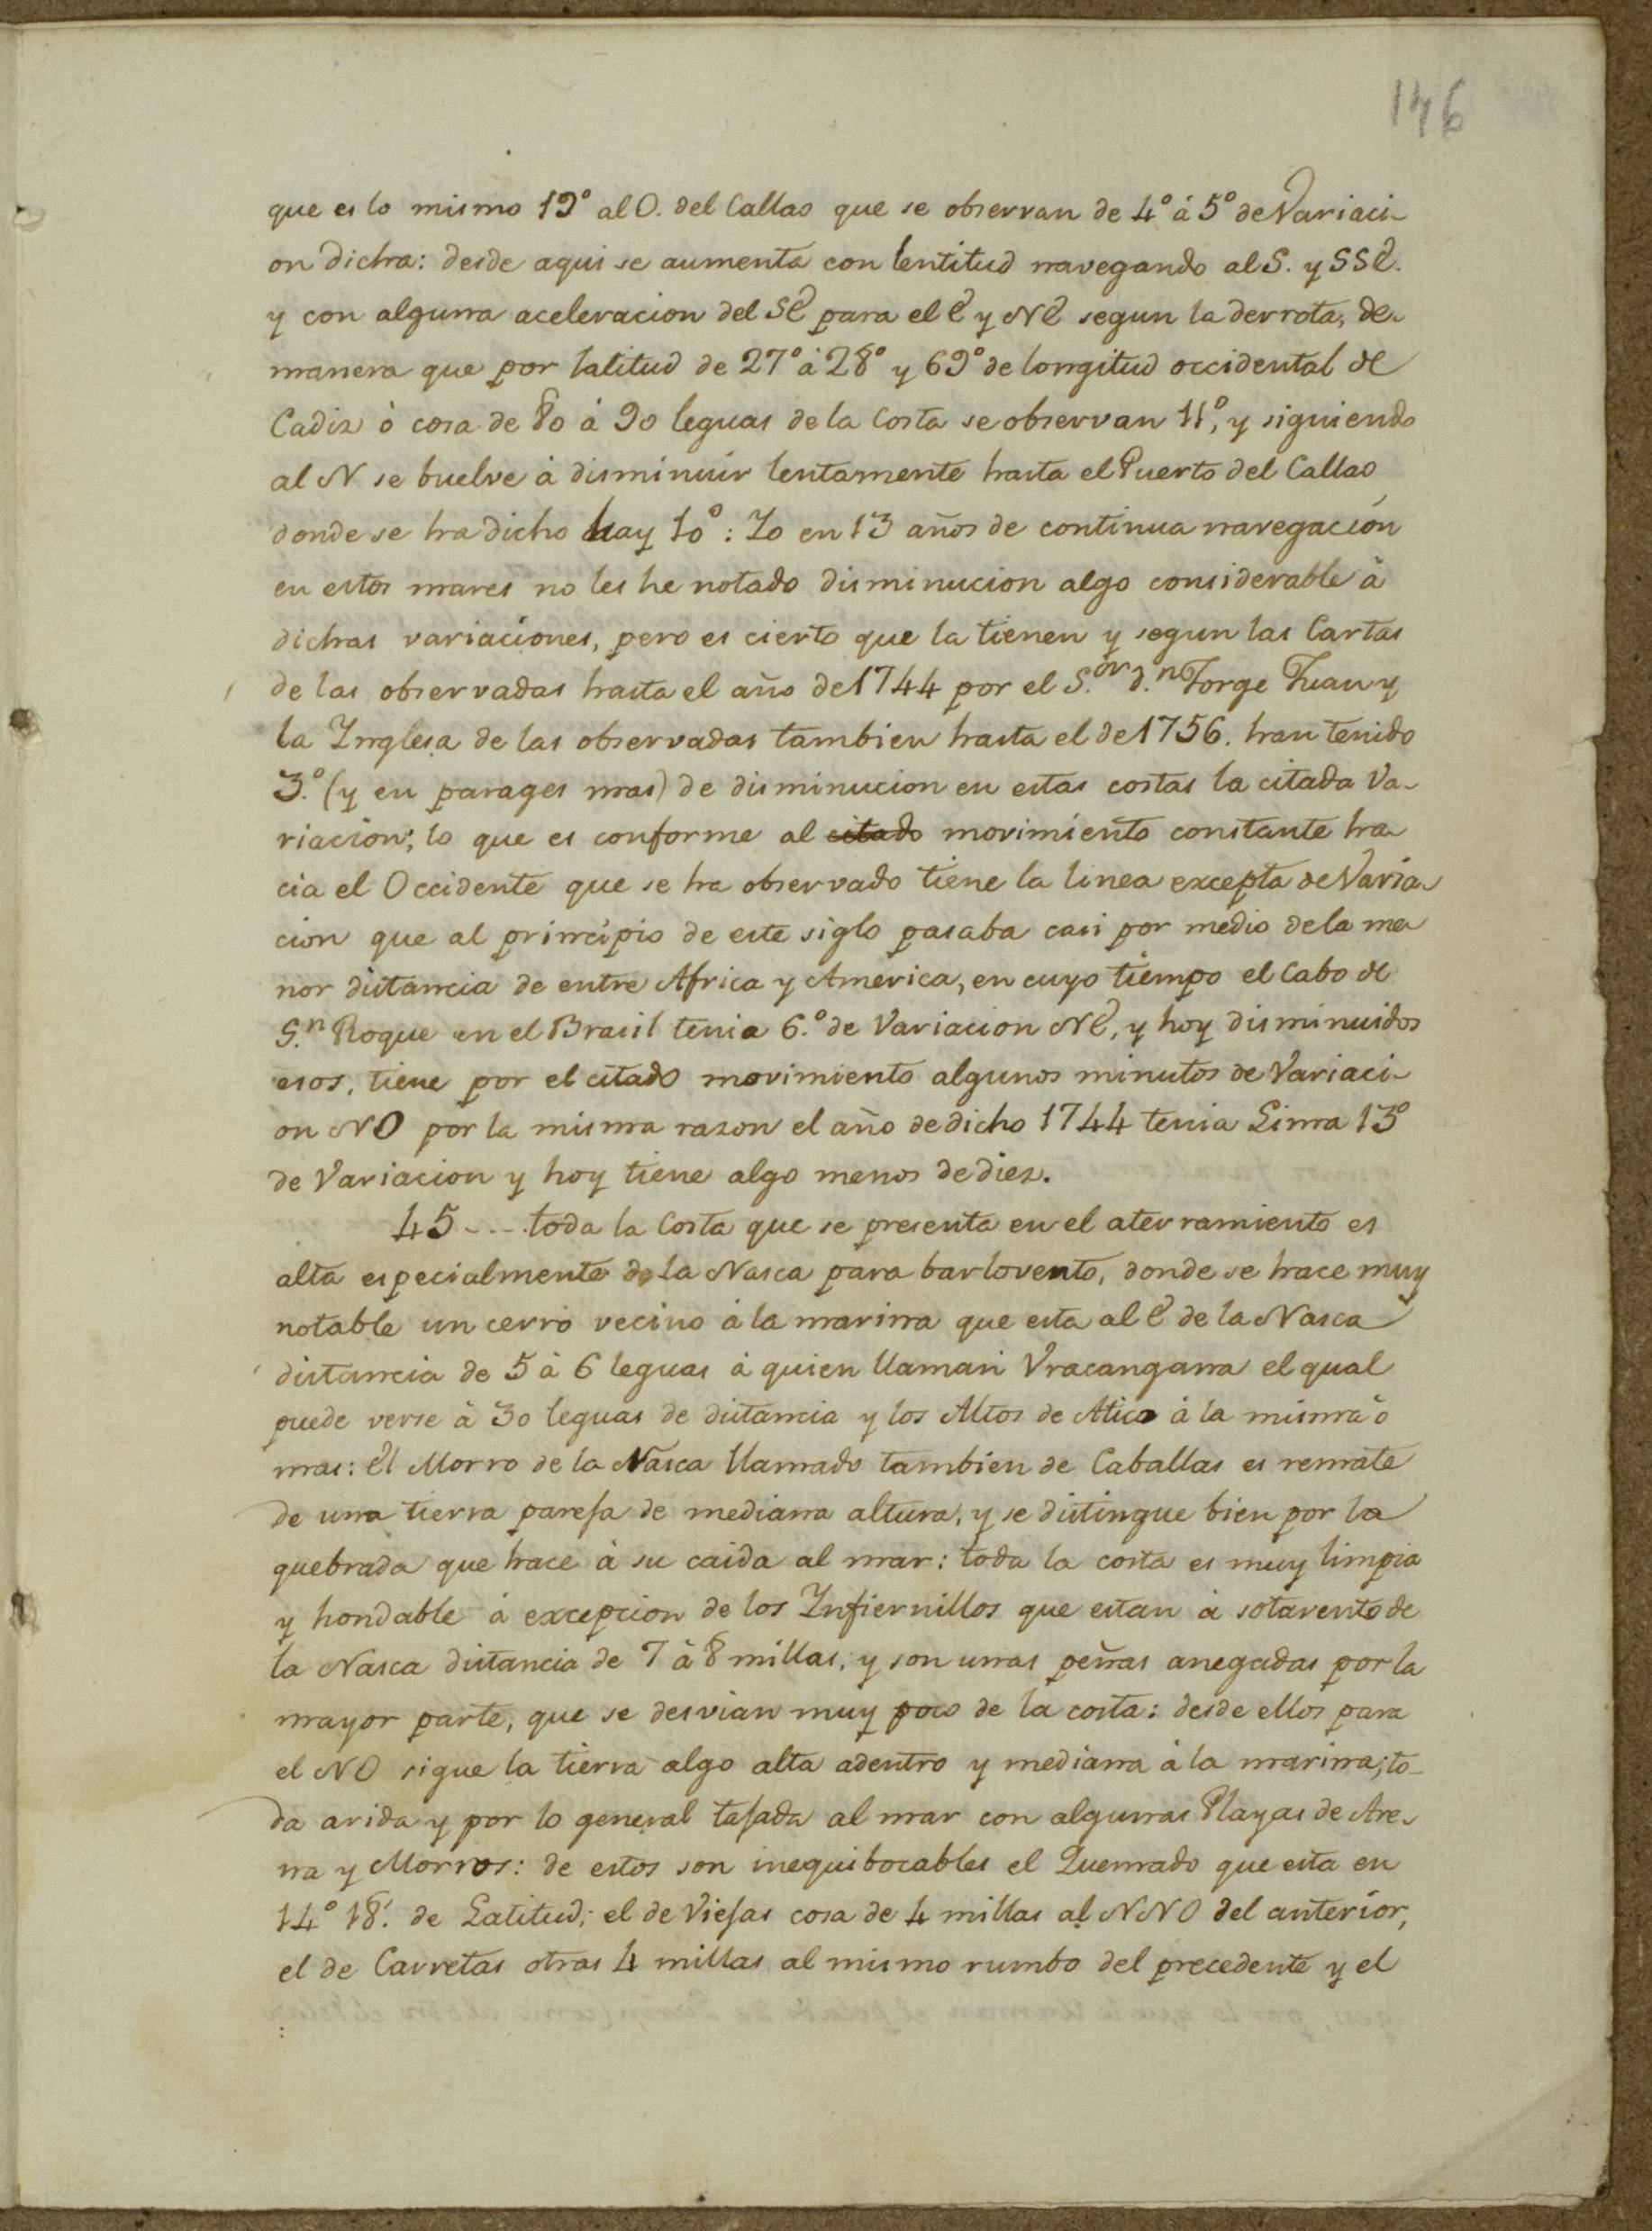 146
que es lo mismo 19° al O. del Callao que se observan de 4° á 5° de Variaci-
on dicha: desde aqui se aumenta con lentitud navegando al S. y SSE.
y con alguna aceleracion del SE para el E y NE segun la derrota, de
manera que por latitud de 27° á 28° y 69° de longitud occidental de
Cadiz ó cosa de 80 á 90 leguas de la Costa se observan 11°, y siguiendo
al N se buelve á disminuir lentamente hasta el Puerto del Callao
donde se ha dicho hay 10°: Yo en 13 años de continua navegacion
en estos mares no les he notado disminucion algo considerable á
dichas variaciones, pero es cierto que la tienen y segun las Cartas
de las observadas hasta el año de 1744 por el S.or d.n Jorge Juan y
la Ynglesa de las observadas tambien hasta el de 1756. han tenido
3.° (y en parages mas) de disminucion en estas costas la citada Va-
riacion; lo que es conforme al citado movimiento constante ha
cia el Occidente que se ha observado tiene la linea excepta de Varia
cion que al principio de este siglo pasaba casi por medio de la me
nor distancia de entre Africa y America, en cuyo tiempo el Cabo de
S.n Roque en el Brasil tenia 6.° de Variacion NE, y hoy disminuidos
esos, tiene por el citado movimiento algunos minutos de Variaci-
on NO por la misma razon el año de dicho 1744 tenia Lima 13°
de Variacion y hoy tiene algo menos de diez.
45 --- toda la Costa que se presenta en el aterramiento es
alta especialmente de la Nasca para barlovento, donde se hace muy
notable un cerro vecino á la marina que esta al E de la Nasca
distancia de 5 á 6 leguas á quien llaman Vracangana el qual
puede verse á 30 leguas de distancia y los Altos de Atico á la misma ó
mas: El Morro de la Nasca llamado tambien de Caballas es remate
de una tierra pareja de mediana altura, y se distingue bien por la
quebrada que hace á su caida al mar: toda la costa es muy limpia
y hondable á excepcion de los Ynfiernillos que estan á sotavento de
la Nasca distancia de 7 á 8 millas, y son unas peñas anegadas por la
mayor parte, que se desvian muy poco de la costa: desde ellos para
el NO sigue la tierra algo alta adentro y mediana á la marina; to-
da arida y por lo general tajada al mar con algunas Playas de Are-
na y Morros: de estos son inequibocables el Quemado que esta en
14° 18'. de Latitud; el de Viejas cosa de 4 millas al NNO del anterior,
el de Carretas otras 4 millas al mismo rumbo del precedente y el